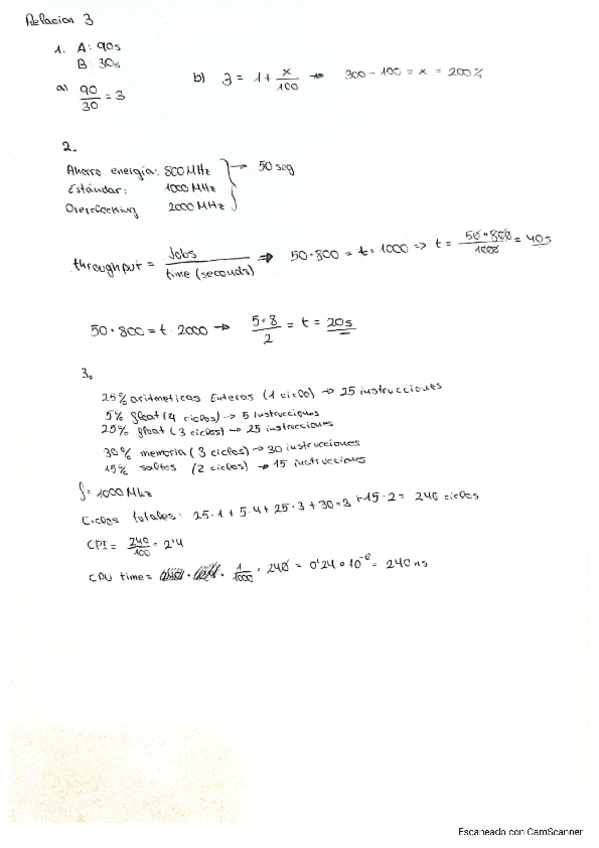 Relacion 3
1. A: 90s
B: 30s
a) 90/30 = 3
b) 3 = 1 + x/100 → 300 - 100 = x = 200%
2.
Ahorro energía: 800 MHz → 50 seg
Estándar: 1000 MHz
Overclocking 2000 MHz
throughput = Jobs/time (seconds) ⇒ 50·800 = t·1000 => t = 50·800/1000 = 40s
50·800 = t·2000 → 5·8/2 = t = 20s
3.
25% aritmeticas Enteros (1 ciclo) → 25 instrucciones
5% float (4 ciclos) → 5 Instrucciones
25% float (3 ciclos) → 25 instrucciones
30% memoria (3 ciclos) → 30 instrucciones
15% saltos (2 ciclos) → 15 instrucciones
f = 1000 Mhz
Ciclos totales: 25·1 + 5·4 + 25·3 + 30·3 + 15·2 = 240 ciclos
CPI = 240/100 = 2'4
CPU time = · 1/1000 · 240 = 0'24·10^-6 = 240 ns
Escaneado con CamScanner